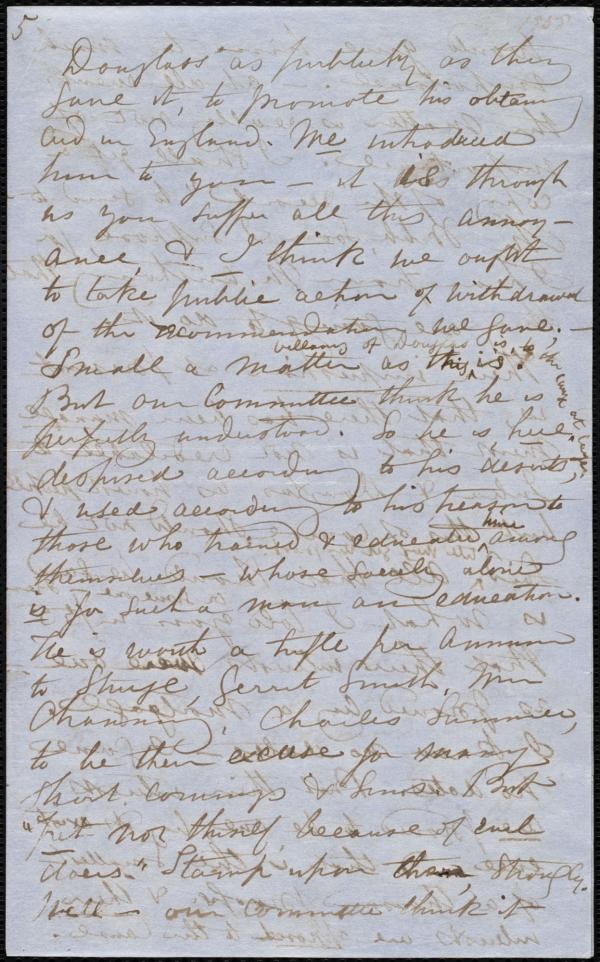 5
1855
Douglass as publickly as they
gave it, to promote his obtaing
aid in England. We introduced
him to you — it is through
us you suffer all this annoy-
ance, & I think we ought
to take public action of withdrawal
of the recommendation we gave, —
villany of Douglass is, to the cause at large
Small a matter as this is.
But our Committee think he is
perfectly understood. So he is, here,
despised according to his deserts,
& used according to his treason to
those who trained & educated him among
themselves — whose society alone
is for such a man an education.
He is worth a trifle per annum
to Gerrit Smith, Wm
Channing, Charles Sumner,
to be their excuse for many
short comings & sins. But
"fret not thyself because of evil
doers." Stamp upon them strongly.
Well — our Committee think it